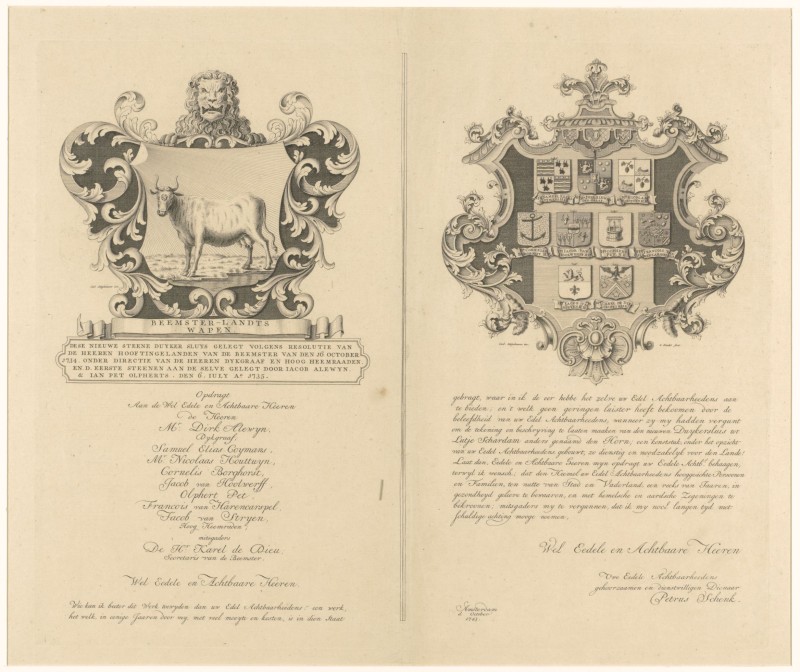 BEEMSTER-LANDTS
WAPEN.
DESE NIEUWE STEENE DUYKER SLUYS GELEGT VOLGENS RESOLUTIE VAN
DE HEEREN HOOFTINGELANDEN VAN DE BEEMSTER VAN DEN 16 OCTOBER
1714. ONDER DIRECTIE VAN DE HEEREN DYKGRAAF EN HOOG HEEMRAADEN
EN D. EERSTE STEENEN AAN DE SELVE GELEGT DOOR IACOB ALEWYN
& IAN PET OLPHERTS. DEN 6. IULY Aº 1715.
Opdragt
Aan de Wel Edele en Achtbaare Heeren
de Heeren
Mr. Dirk Alewyn,
Dykgraaf
Samuel Elias Coymans,
Mr. Nicolaas Houttuyn,
Cornelis Berghorst,
Jacob van Hoolwerff
Olphert Pet,
Francois van Harencarspel,
Jacob van Stryen,
Hoog Heemraden
mitsgaders
De Hr. Karel de Dieu,
Secretaris van de Beemster.
Wel Eedele en Achtbaare Heeren.
Wie kan ik beter dit Werk toeryden dan uw Edel Achtbaarheidens! een werk,
het welk, in eenige Jaaren door my, met veel moeyte en kosten, is in dien staat
gebragt, waar in ik de eer hebbe het zelve uw Edel Achtbaarheidens aan
te bieden; en 't welk geen geringen luister heeft bekoomen door de
beleefdheid van uw Edel Achtbaarheedens, wanneer zy my hadden vergunt
om de tekening en beschryving te laaten maaken van den nieuwen Duykersluis tot
Lutje Schardam anders genaamd den Horn, een konststuk, onder het opzicht
van uw Edel Achtbaarheidens gebouwt, zo dienstig en noodzakelyk voor den Lande!
Laat dan, Eedele en Achtbaare Heeren myn opdragt uw Eedele Achtb. behaagen,
terwyl ik wensch, dat den Hemel uw Edel Achtbaarheedens hooggeachte Persoonen
en Familien, ten nutte van Stad en Vaderland, een reeks van Jaaren, in
gezondheyd geliere te bewaaren, en met hemelsche en aardsche Zegeningen te
bekroonen, mitsgaders my te vergunnen, dat ik my nog langen tyd met
schuldige achting mooge noemen,
Wel Eedele en Achtbaare Heeren
Uwe Eedele Achtbaarheedens
gehoorzaamen en dienstwilligen Dienaar
Petrus Schenk.
Amsterdam
October